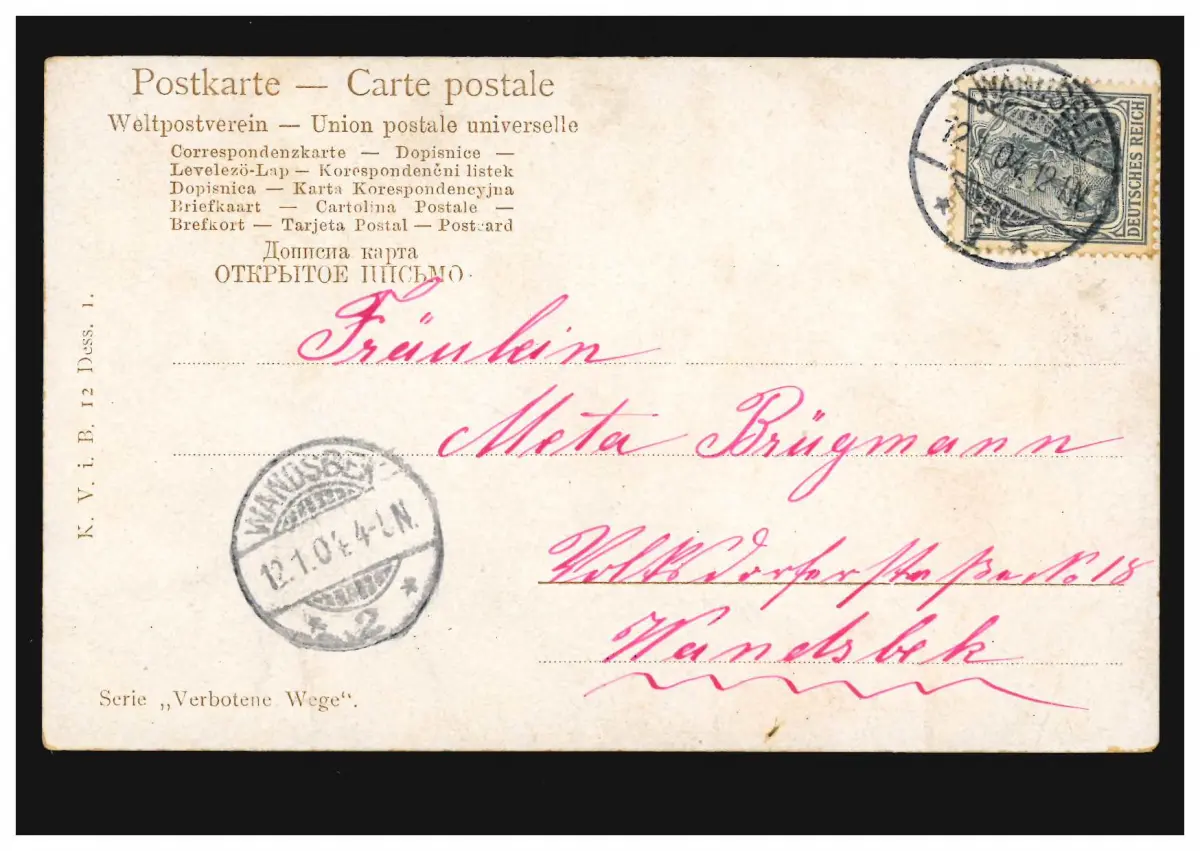 Postkarte — Carte postale
Weltpostverein — Union postale universelle
Correspondenzkarte — Dopisnice —
Levelezö-Lap — Korespondenčni listek
Dopisnica — Karta Korespondencyjna
Briefkaart — Cartolina Postale —
Brefkort — Tarjeta Postal — Postcard
Дописна карта
ОТКРЫТОЕ ПИСЬМО
WANDSBEK
12.1.04. 12-1 N.
DEUTSCHES REICH
2
Fräulein
Meta Brügmann
Volksdorferstraße No 18
Wandsbek
WANDSBEK
12.1.04. 4-5 N.
* 2 *
K. V. i. B. 12 Dess. 1.
Serie „Verbotene Wege“.